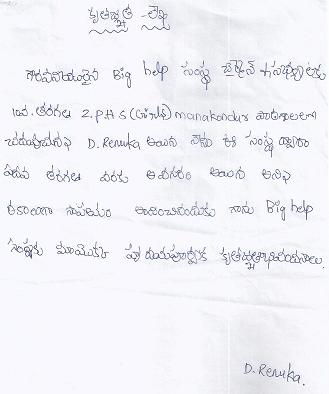 కృతజ్ఞత - లేఖ
గౌరవనీయులైన Big help సంస్థ చైర్మన్ & సభ్యులకు
10వ. తరగతి Z.P.H.S (బాలికల) manakondur పాఠశాలలో
చదువుచున్న D. Renuka అయిన నేను ఈ సంస్థ ద్వారా
పదవ తరగతి వరకు అవసరం అయిన అన్ని
రకాలుగా సాయం అందించినందుకు గాను Big help
సంస్థకు మాయొక్క హృదయపూర్వక కృతజ్ఞతాభివందనాలు.
D. Renuka.